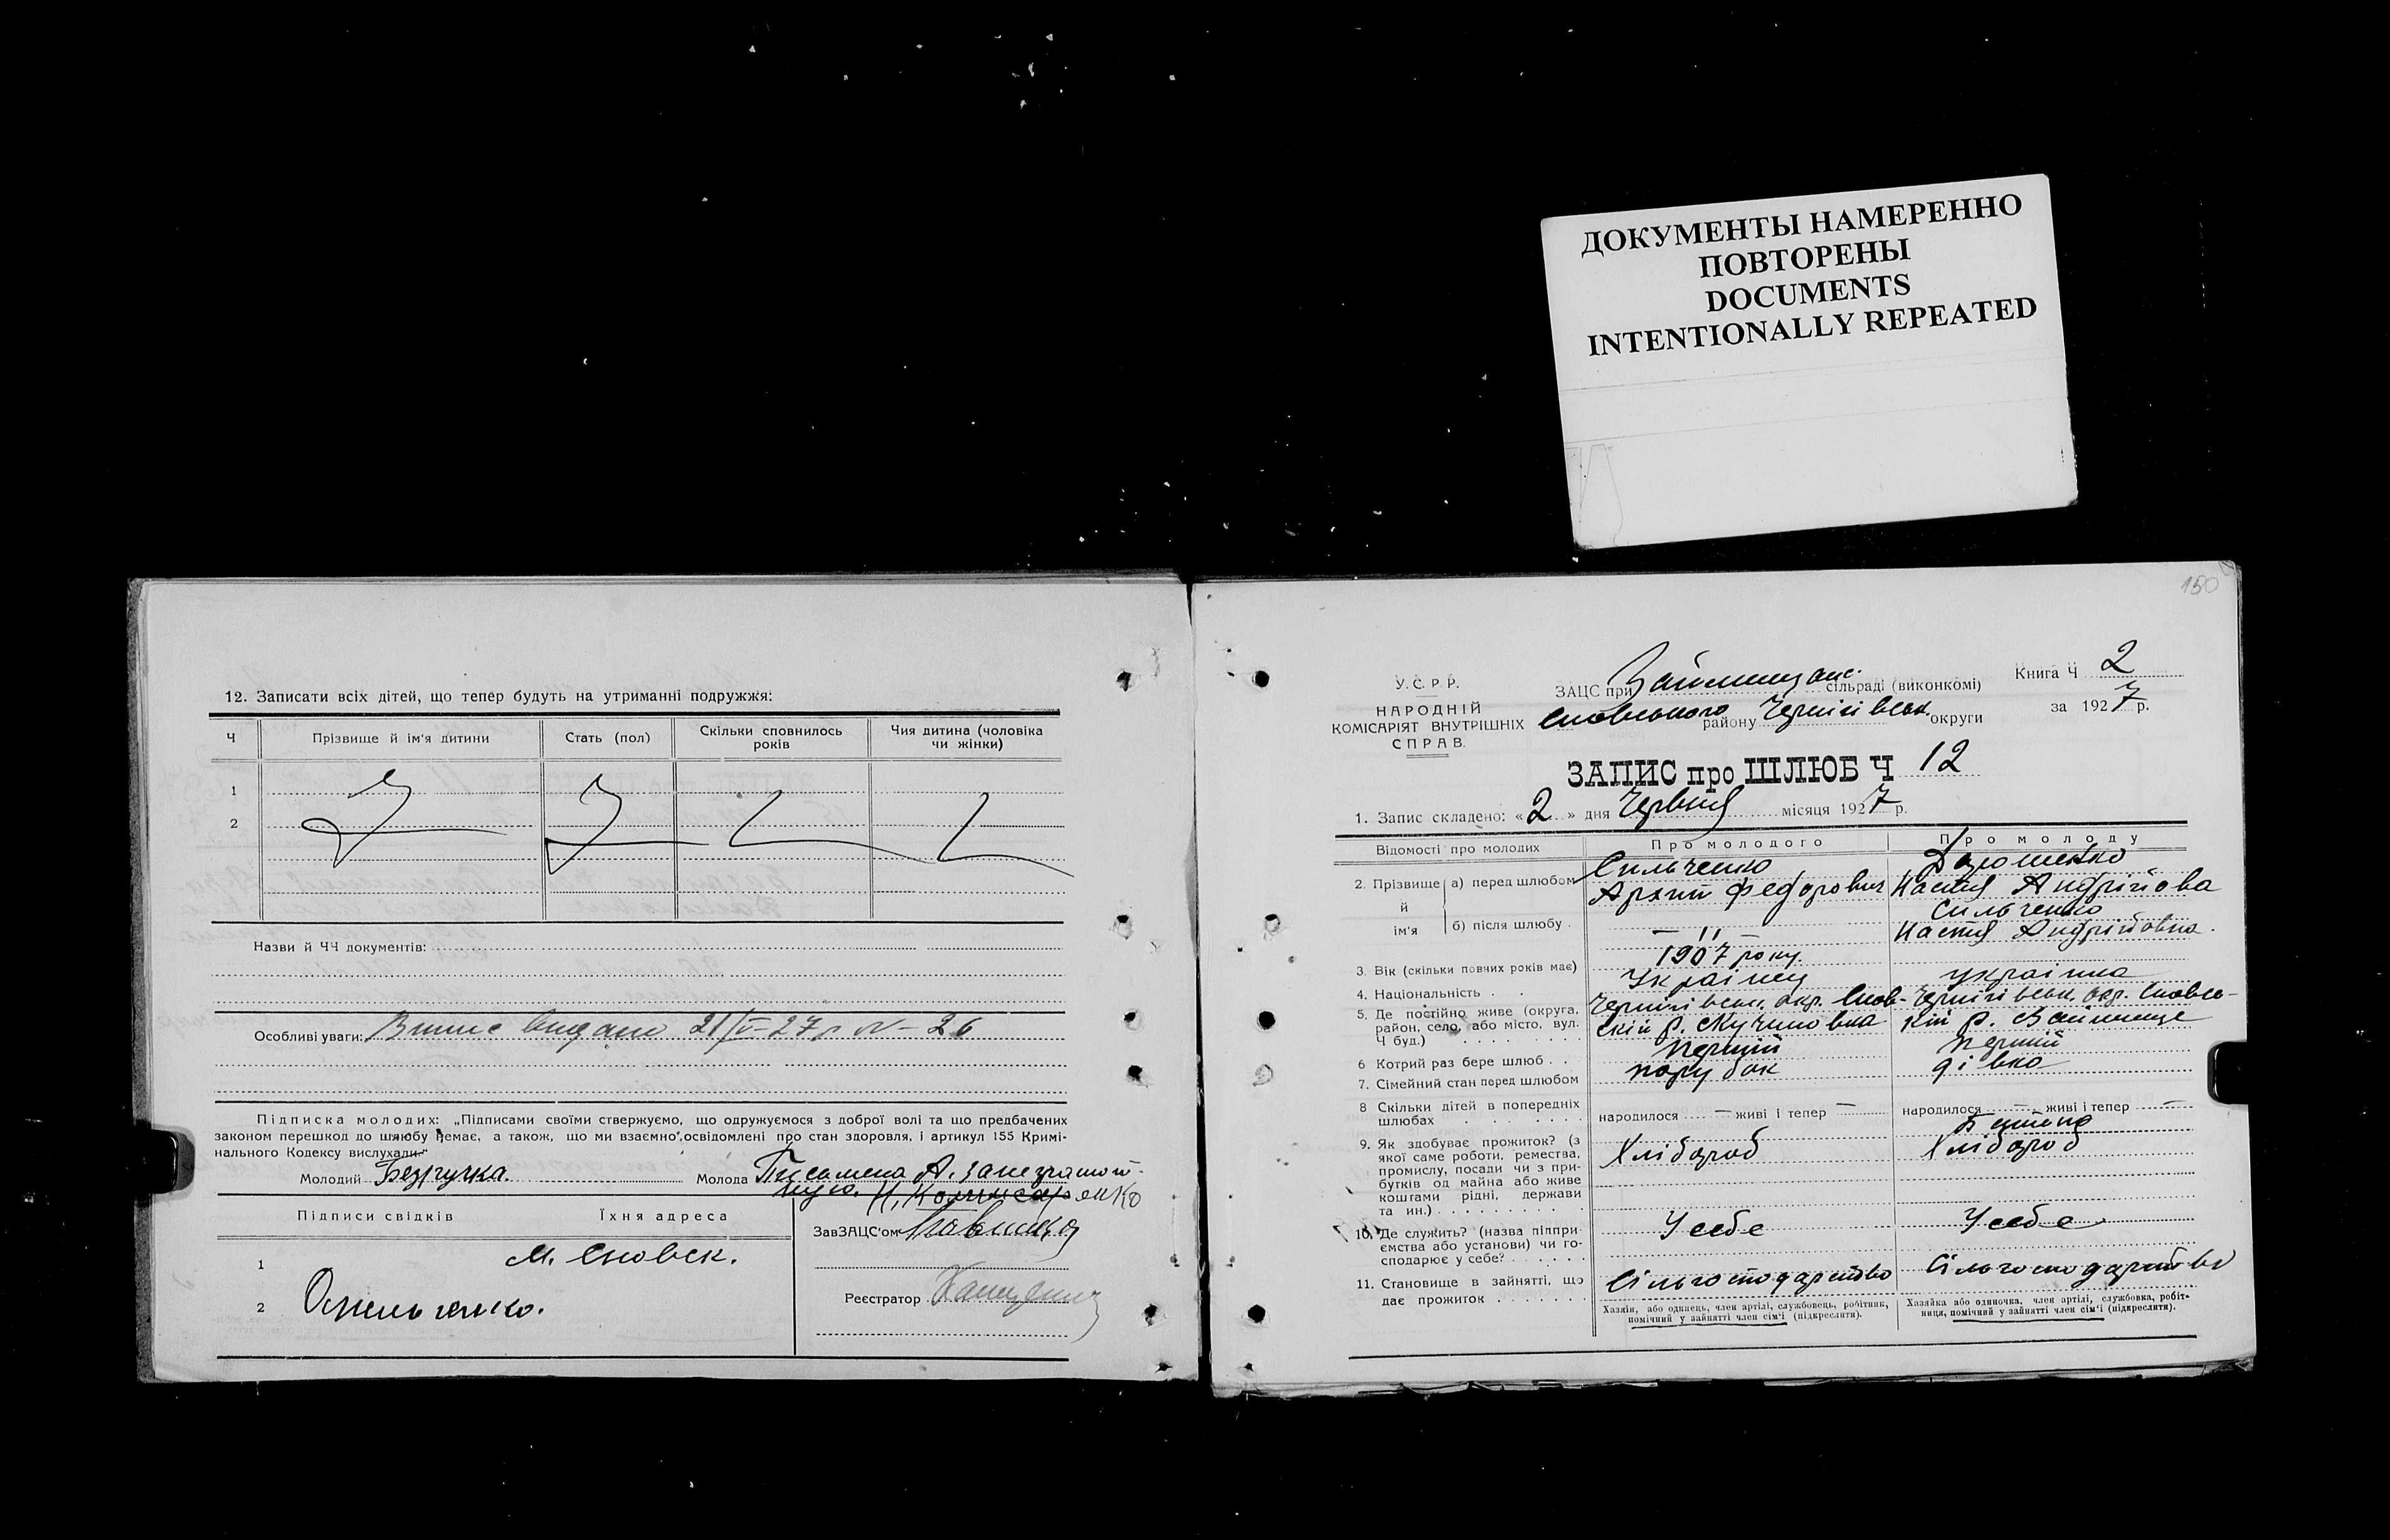 ДОКУМЕНТЫ НАМЕРЕННО
ПОВТОРЕНЫ
DOCUMENTS
INTENTIONALLY REPEATED
12. Записати всіх дітей, що тепер будуть на утриманні подружжя:
Ч Прізвище й ім'я дитини Стать (пол) Скільки сповнилось років Чия дитина (чоловіка чи жінки)
1
2
Назви й ЧЧ документів:
Особливі уваги: видано 21/V-27 р. N-26
Підписка молодих: „Підписами своїми стверджуємо, що одружуємося з доброї волі та що предбачених
законом перешкод до шлюбу немає, а також, що ми взаємно освідомлені про стан здоровля, і артикул 155 Кримі-
нального Кодексу вислухали."
Молодий Безручка. Молода Письмена А. за неграмот-
ную. Н.
Підписи свідків Їхня адреса
ЗавЗАЦС'ом
1 м. Сновск.
Реєстратор
2 Омельченко.
150
У.С.Р.Р.
НАРОДНІЙ
КОМІСАРІЯТ ВНУТРІШНІХ
СПРАВ.
ЗАЦС при Займищанс. сільраді (виконкомі)
Сновського району Чернігівськ. округи
Книга Ч 2
за 1927 р.
ЗАПИС про ШЛЮБ Ч 12
1. Запис складено: «2» дня Червня місяця 1927 р.
Відомості про молодих Про молодого Про молоду
2. Прізвище й ім'я
а) перед шлюбом Сильченко Архип Федорович Дорошенко Настя Андрійова
б) після шлюбу — 11 — Сильченко Настя Андрійовна.
3. Вік (скільки повних років має) 1907 року
4. Національність Українец українка
5. Де постійно живе (округа, район, село, або місто, вул. Ч буд.) Чернігівськ. окр. Снов-скій р. Кучиновка Чернігівськ. окр. Сновсь-кій р. Займище
6 Котрий раз бере шлюб Перший Перший
7. Сімейний стан перед шлюбом парубок дівка
8 Скільки дітей в попередніх шлюбах народилося — живі і тепер — народилося — живі і тепер —
9. Як здобуває прожиток? (з якої саме роботи, ремества, промислу, посади чи з прибутків од майна або живе коштами рідні, держави та ин.) Хлібороб Хлібороб
10. Де служить? (назва підприємства або установи) чи господарює у себе? У себе У себе
11. Становище в зайнятті, що дає прожиток Сільгосподарство Сільгосподарство
Хазяїн, або одинець, член артілі, службовець, робітник, помічний у зайнятті член сім'ї (підкреслити).
Хазяйка або одиночка, член артілі, службовка, робітниця, помічний у зайнятті член сім'ї (підкреслити).